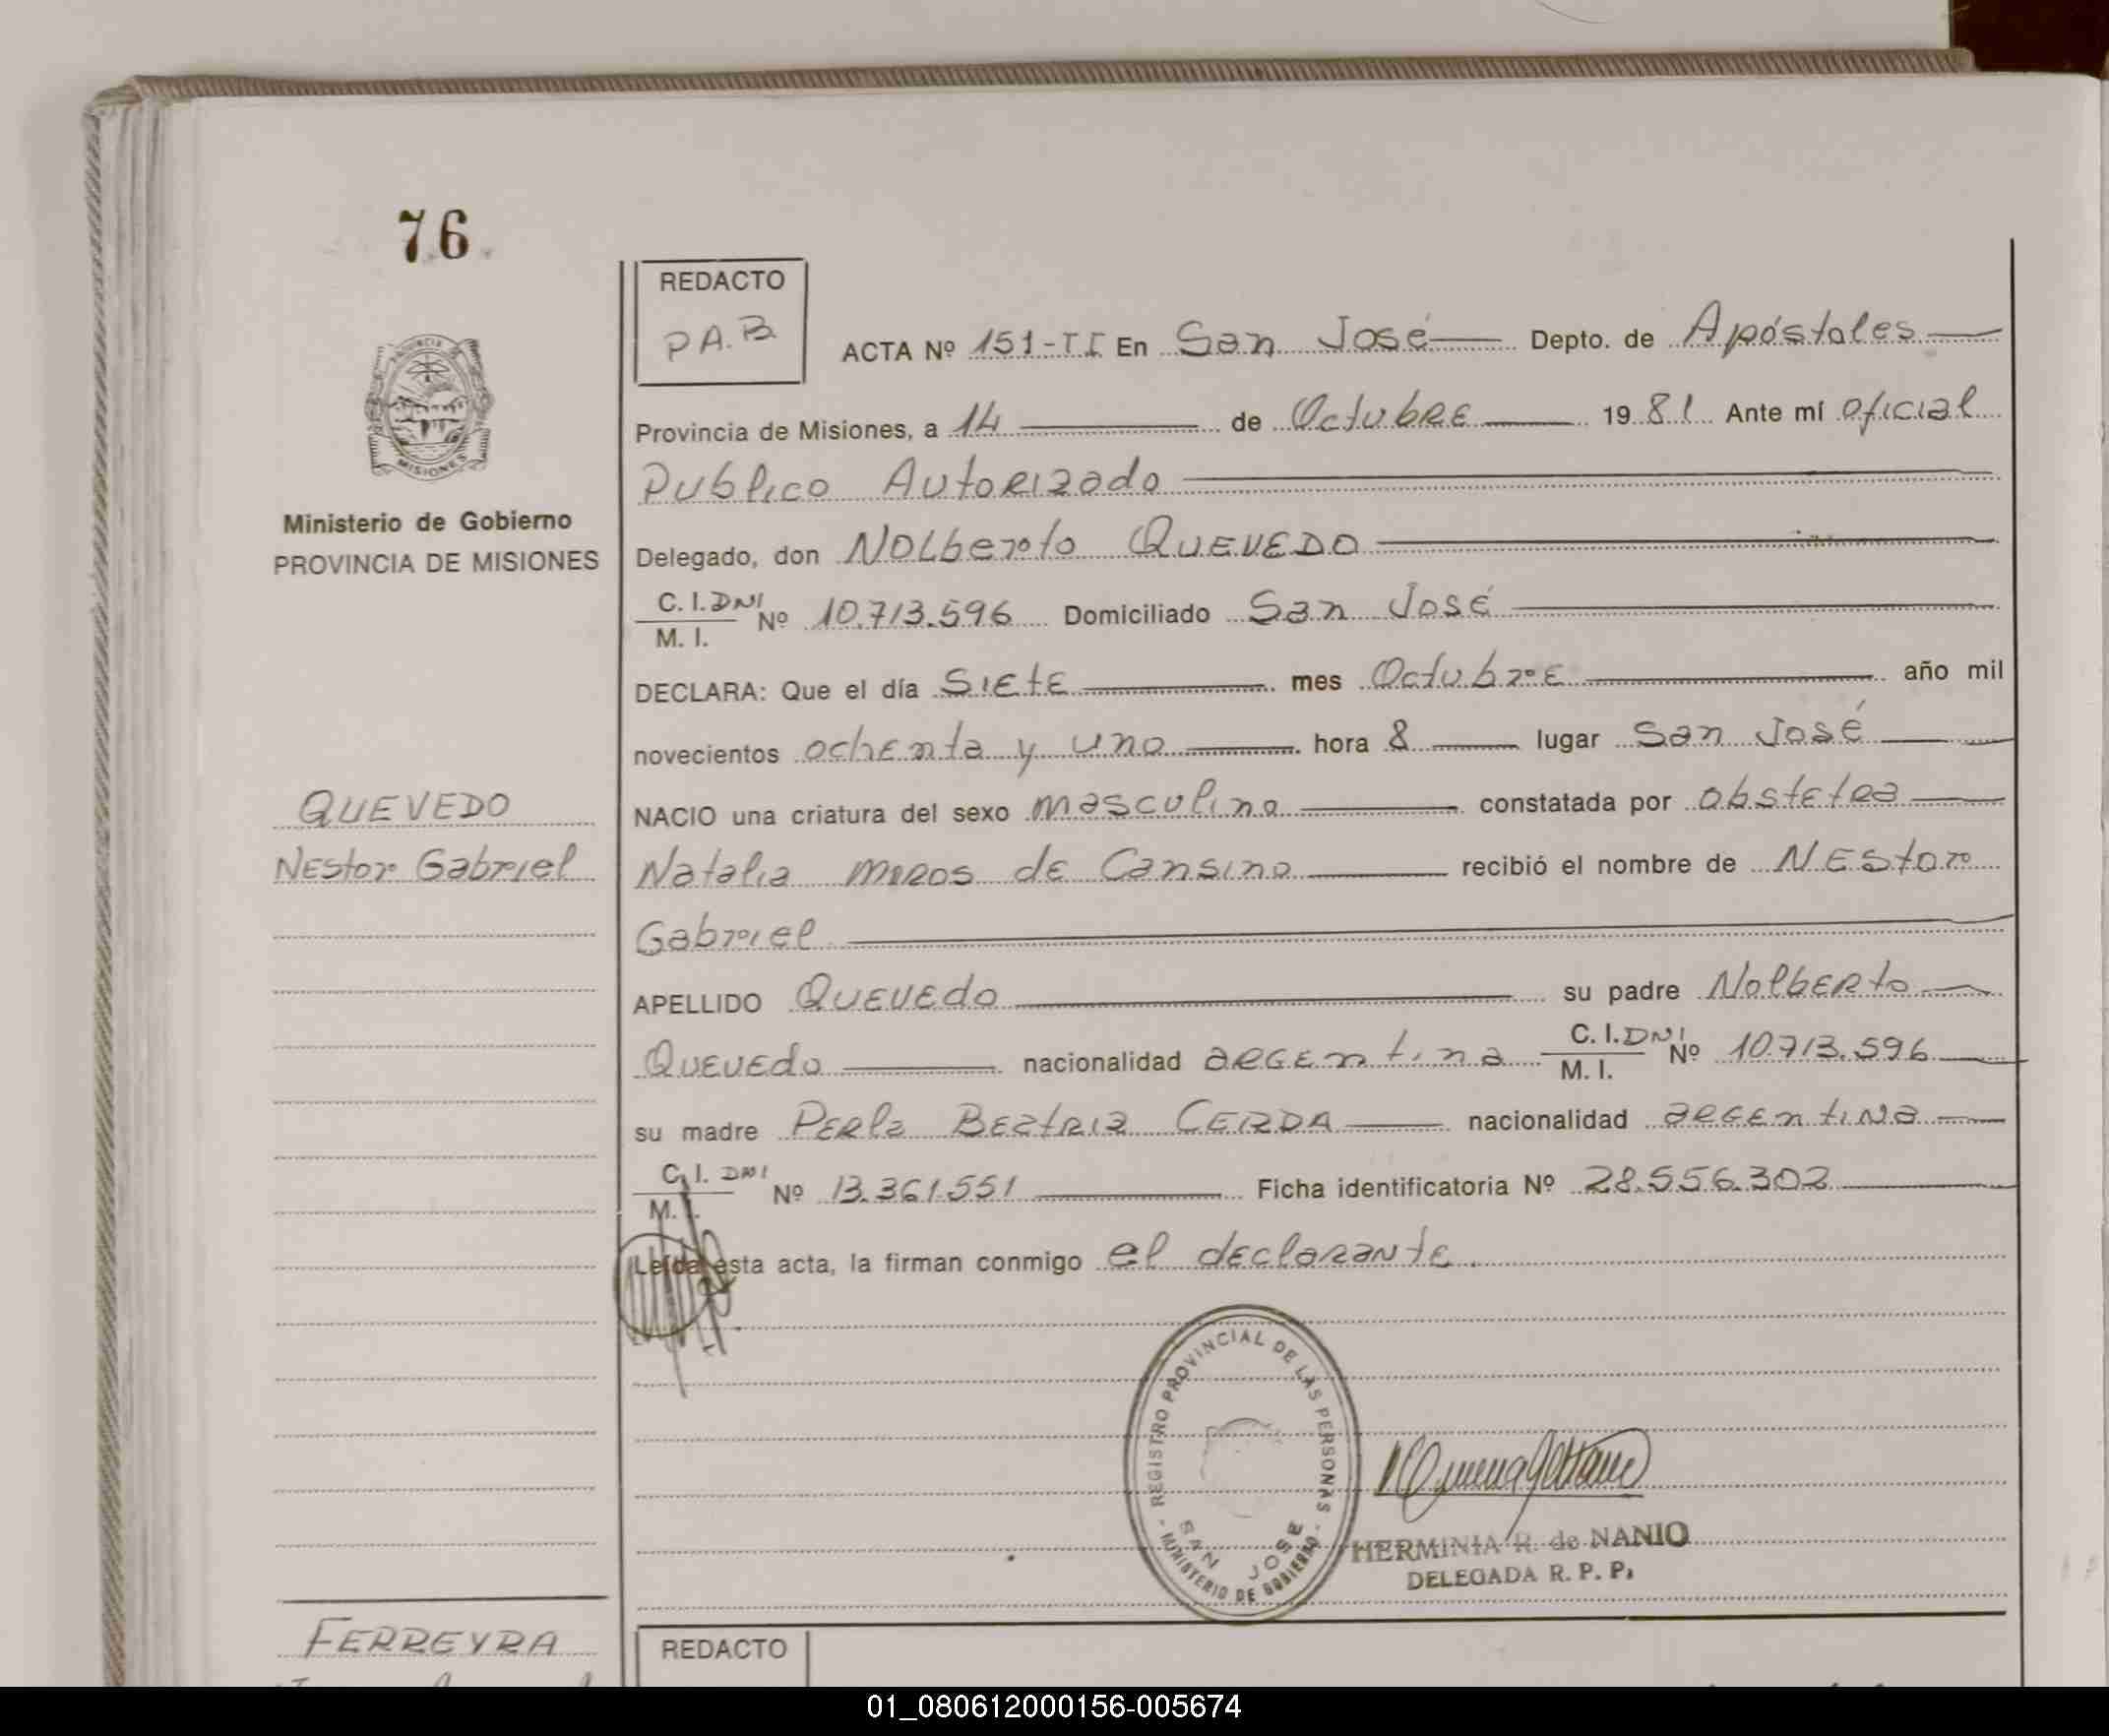 76
REDACTO
P.A.B.
ACTA Nº 151-II En San José Depto. de Apóstoles
Provincia de Misiones, a 14 de Octubre 1981 Ante mí oficial
Publico Autorizado
Delegado, don Nolberto QUEVEDO
C. I. DNI
M. I. Nº 10.713.596 Domiciliado San José
DECLARA: Que el día Siete mes Octubre año mil
novecientos ochenta y uno hora 8 lugar San José
NACIO una criatura del sexo masculino constatada por obstetra
Natalia Miros de Cansino recibió el nombre de Nestor
Gabriel
APELLIDO Quevedo su padre Nolberto
Quevedo nacionalidad argentina C. I. DNI
M. I. Nº 10.713.596
su madre Perla Beatriz CERDA nacionalidad argentina
C. I. DNI
M. I. Nº 13.361.551 Ficha identificatoria Nº 28.556.302
Leída esta acta, la firman conmigo el declarante.
PROVINCIA DE
MISIONES
Ministerio de Gobierno
PROVINCIA DE MISIONES
QUEVEDO
Nestor Gabriel
- REGISTRO PROVINCIAL DE LAS PERSONAS -
MINISTERIO DE GOBIERNO
SAN JOSE
HERMINIA R. de NANIO
DELEGADA R. P. P.
FERREYRA
REDACTO
01_080612000156-005674